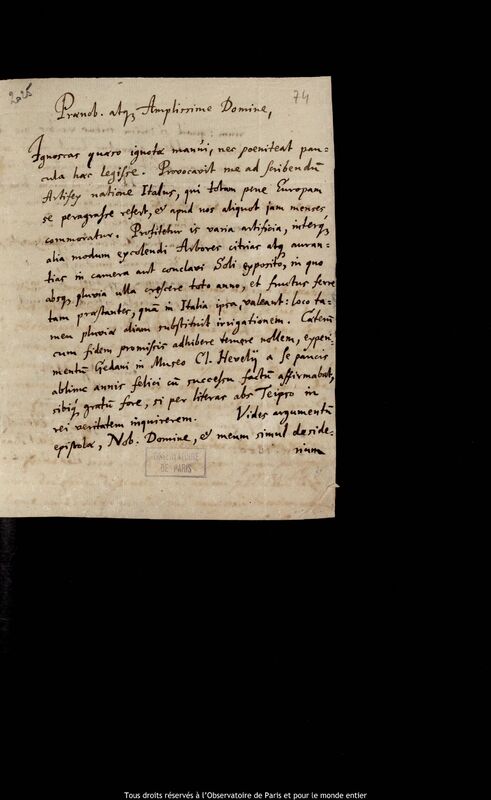 2025
74
Prænob. atq3 Amplissime Domine,
Ignoscas quæso ignotæ manui, nec poeniteat pau=
cula hæc legisse. Provocavit me ad scribendũ
Artifex natione Italus, qui totam pene Europam
se peragrasse refert, et apud nos aliquot jam menses
commoratur. Profitetur is varia artificia, interq3
alia modum excolendi Arbores citrias atq3 auran=
tias in camera aut conclavi Soli exposito, in quo
absq3 pluvia ulla crescere toto anno, et fructus ferre
tam præstantes, quã in Italia ipsa, valeant: loco ta=
men pluviæ etiam substituit irrigationem. Cæterũ
cum fidem promissis adhibere temere nollem, experi=
mentũ Gedani in Museo Cl. Hevelij a se paucis
abhinc annis felici cũ successu factũ affirmabat,
sibiq3 gratũ fore, si per literas abs Teipso in
rei veritatem inquirerem. Vides argumentũ
epistolæ, Nob. Domine, et meum simul deside=
rium
OBSERVATOIRE
DE PARIS
Tous droits réservés à l'Observatoire de Paris et pour le monde entier